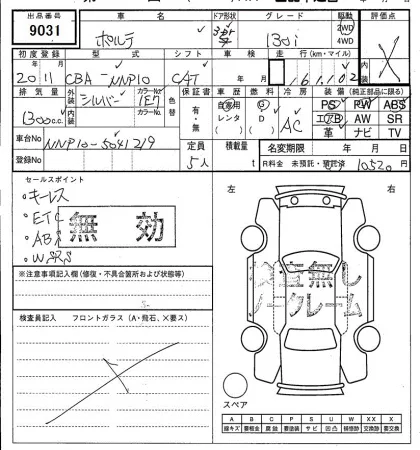 出品番号 車名 ドア形状 グレード 駆動 評価点
9031 ポルテ 3ドア 130i 2WD 4WD
初度登録 型式 シフト 車検 走行(km・マイル)
年 月 年 月
2011 CBA-NNP10 CAT 161,102
排気量 外装 内装 カラーNo. シルバー 1E7 カラーNo. 色替 保証書 車歴 燃料 冷房 装備(純正部品に限る)
1300c.c. 有・無 自家用 レンタ ( ) G D ( ) AC PS PW ABS
エアB AW SR
革 ナビ TV
車台No. NNP10-5041219 定員 積載量 名変期限 年 月 日
登録No. 5人 t R料金 未預託・預託済 10520円
セールスポイント
・キーレス
・ETC
・ABS
・W SRS
無効
左 右
検査無し
ノークレーム
※注意事項記入欄(修復・不具合箇所および状態等)
検査員記入 フロントガラス(A・飛石、X要ス)
スペア
A B C P S U W X XX
線キズ 要交換